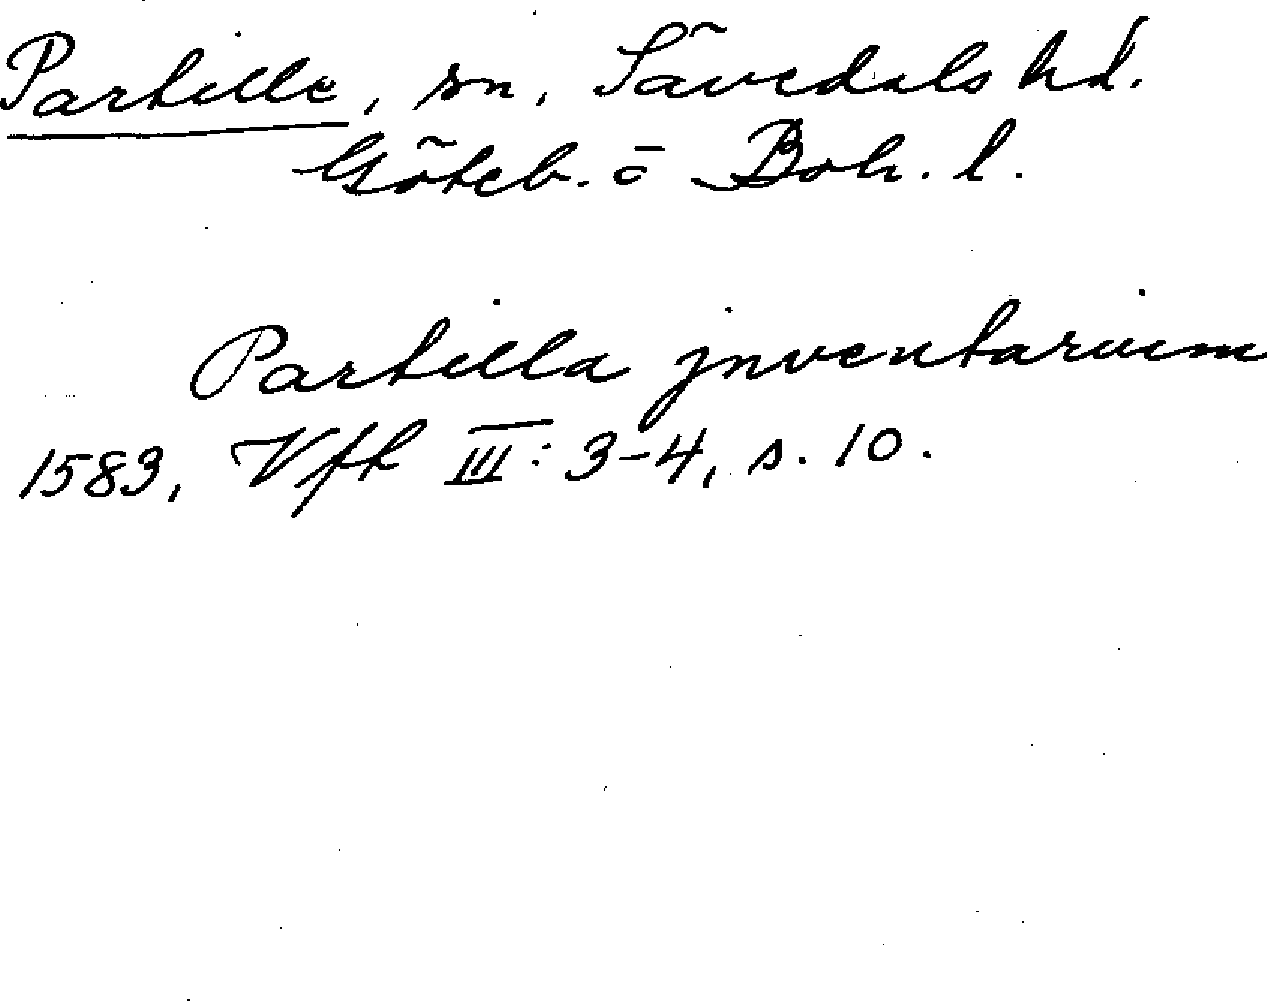 Partille, sn, Sävedals hd.
Göteb. o Boh. l.
Partilla jnventarium
1583, Vfk III: 3-4, s. 10.